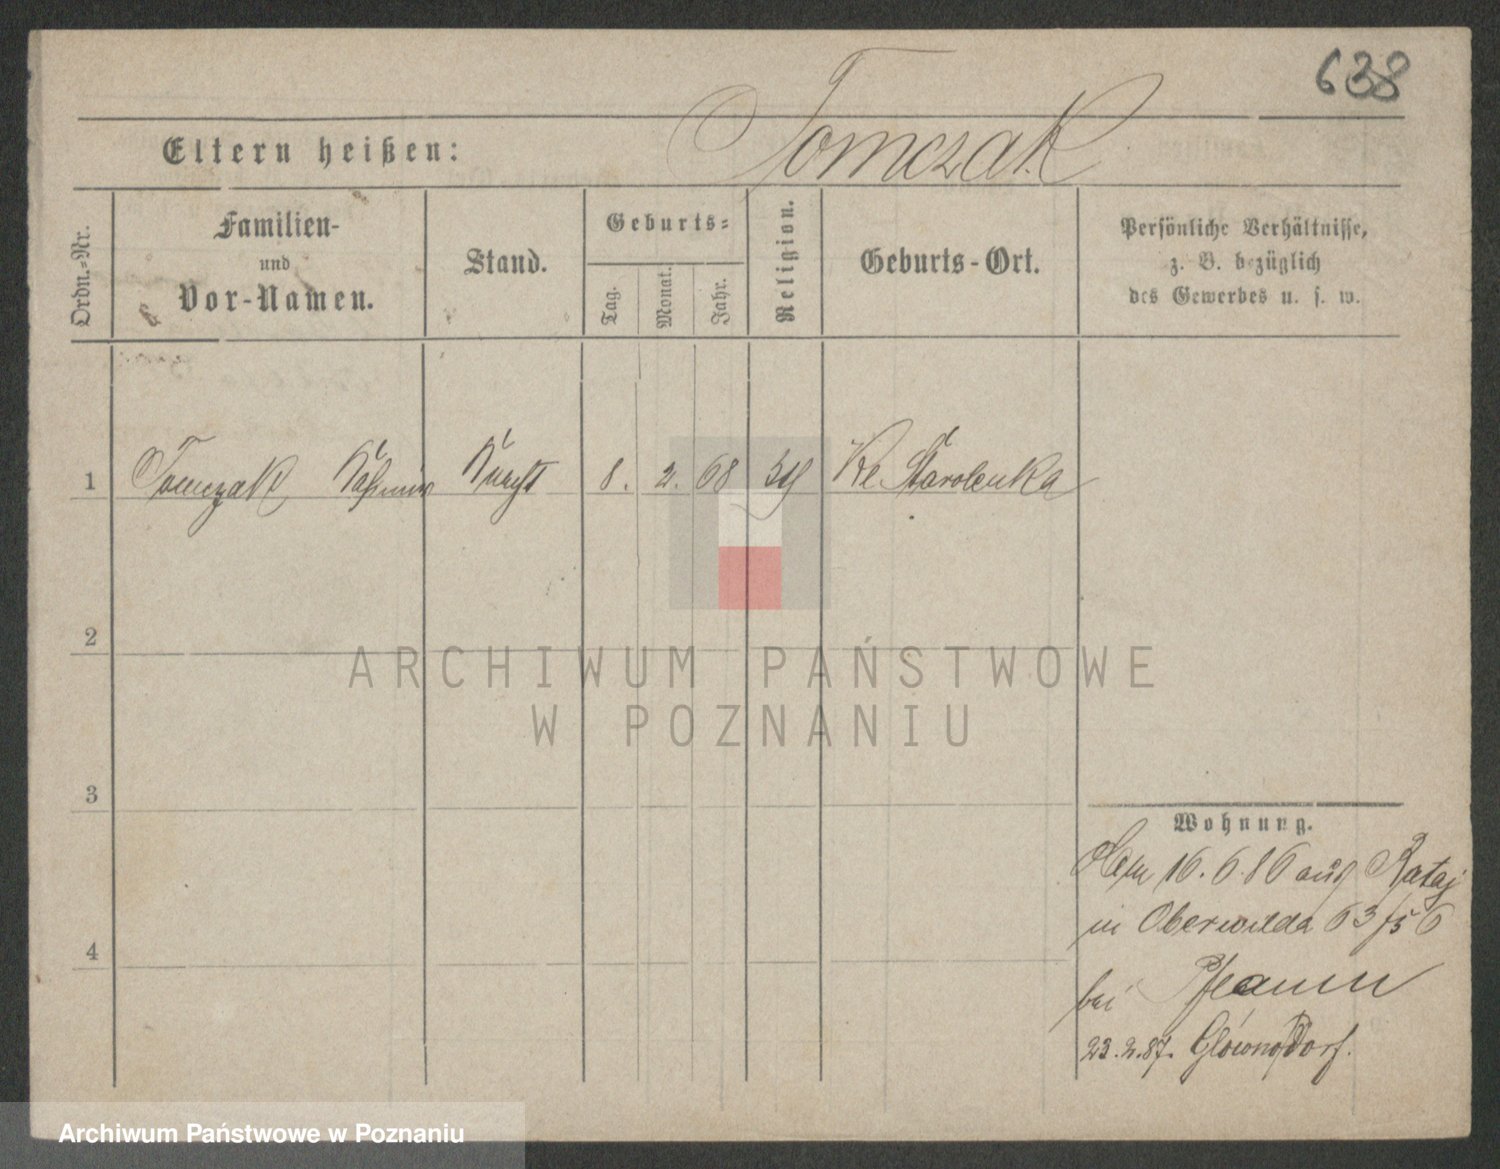 638
Tomczak
Eltern heißen:
Ordn.-Nr.
Familien-
und
Vor-Namen.
Stand.
Geburts-
Tag.
Monat.
Jahr.
Religion.
Geburts-Ort.
Persönliche Verhältnisse,
z. B. bezüglich
des Gewerbes u. s. w.
1 Tomczak Kasimir Knecht 8. 2. 68 Kl. Starolenka
2
3
4
ARCHIWUM PAŃSTWOWE
W POZNANIU
Wohnung.
16. 6. 86 aus Rataj
in Oberwilda 63/56
bei Pflaum
23.2.87. Glowno Dorf.
Archiwum Państwowe w Poznaniu